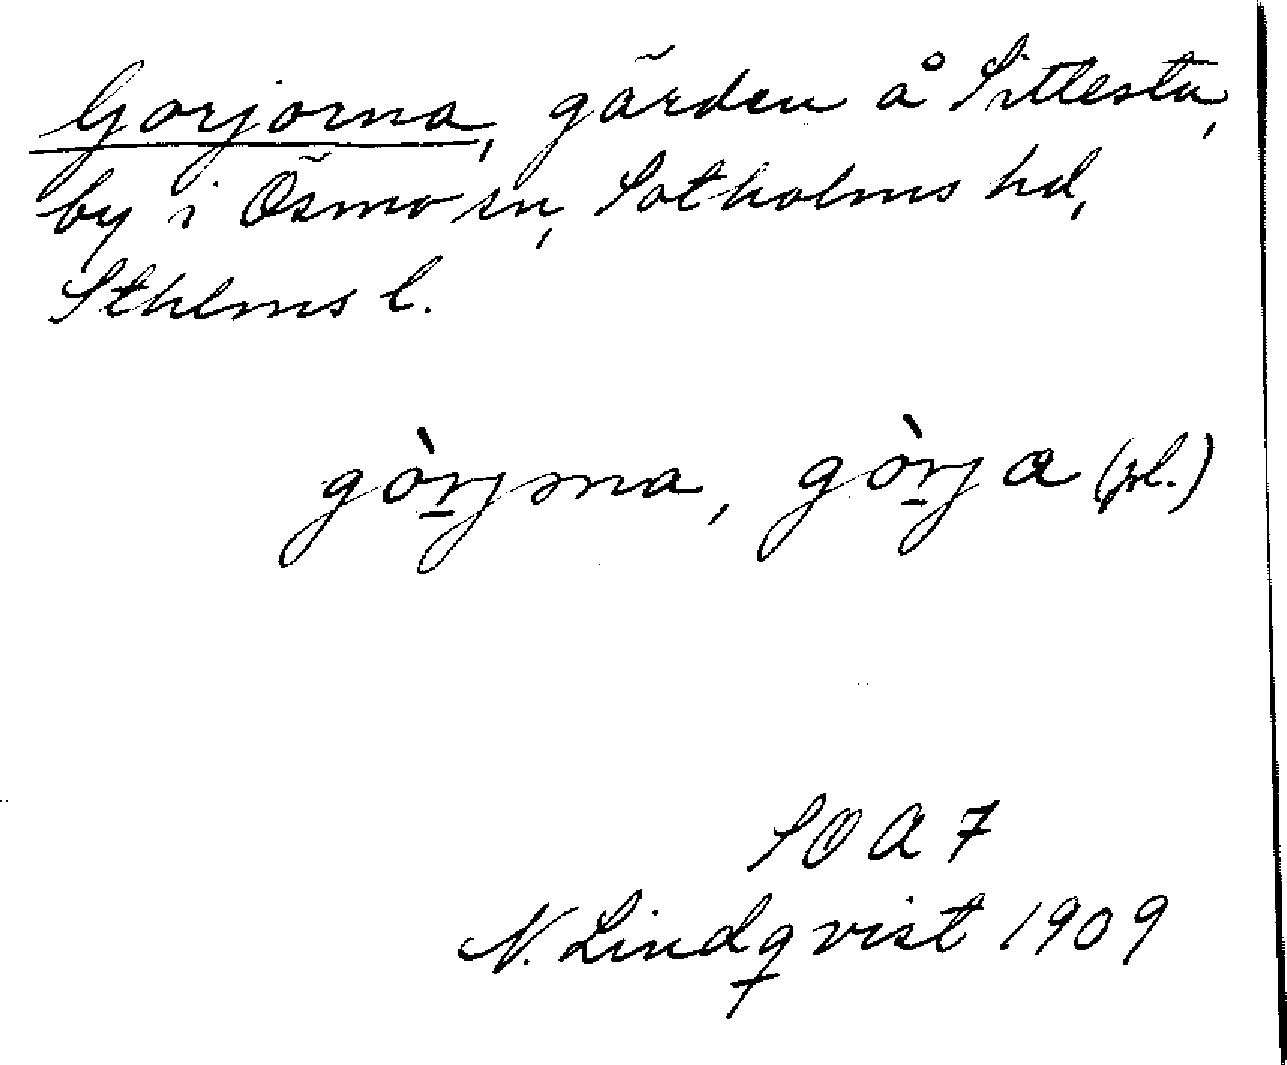 Gorjorna, gärden å Sittesta,
by i Ösmo sn, Sotholms hd,
Sthlms l.
gòrjɔna, gòrja (pl.)
SOA 7
N. Lindqvist 1909